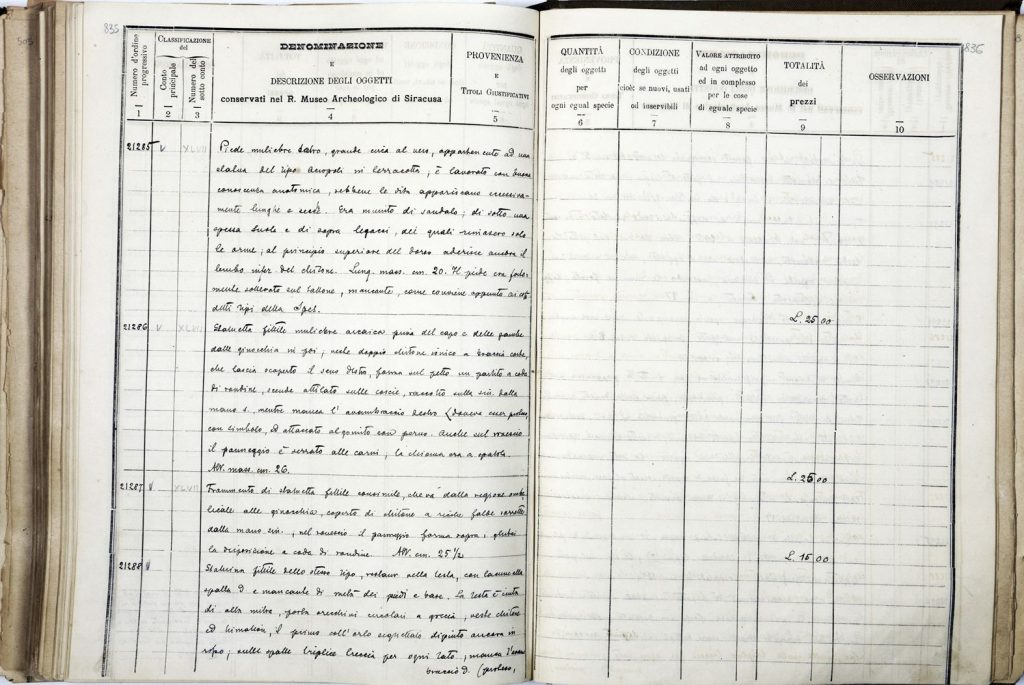 835
Numero d'ordine progressivo
Classificazione del
Conto principale
Numero del sotto conto
DENOMINAZIONE
E
DESCRIZIONE DEGLI OGGETTI
conservati nel R. Museo Archeologico di Siracusa
PROVENIENZA
E
Titoli Giustificativi
1 2 3 4 5
21285 V XLVII
Piede muliebre destro, grande circa al vero, appartenente ad una
statua del tipo acropoli in terracotta; è lavorato con buona
conoscenza anatomica, sebbene le dita appariscano eccessiva-
mente lunghe e secche. Era munito di sandalo; di sotto una
spessa suola e di sopra legacci, dei quali rimasero solo
le orme; al principio superiore del dorso aderisce ancora il
lembo infer. del chitone. Lung. mass. cm. 20. Il piede era forte-
mente sollevato sul tallone, mancante, come conviene appunto ai cosi
detti tipi della Spes.
21286 V XLVII
Statuetta fittile muliebre arcaica priva del capo e delle gambe
dalle ginocchia in poi; veste doppio chitone ionico a braccia corte,
che lascia scoperto il seno destro, forma sul petto un partito a coda
di rondine, scende attilato sulle coscie, raccolto sulla sin. dalla
mano s., mentre manca l'avambraccio destro (doveva esser proteso
con simbolo, ed attaccato al gomito con perno. Anche sul rovescio
il panneggio è serrato alle carni; la chioma era a spatola.
Alt. mass. cm. 26.
21287 V XLVII
Frammento di statuetta fittile consimile, che va dalla regione ombe-
licale alle ginocchia, coperto di chitone a ricche falde sorretto
dalla mano sin.; nel rovescio il panneggio forma sopra i glutei
la disposizione a coda di rondine. Alt. cm. 25 1/2
21288 V
Statuina fittile dello stesso tipo, restaur. nella testa, con lacune alla
spalla D e mancante di metà dei piedi e base. La testa è cinta
di alta mitra, porta orecchini circolari a goccia, veste chitone
ed himation, il primo coll'orlo dipinto ancora in
rosso; sulle spalle triplice treccia per ogni lato; manca l'avam
braccio d. (proteso,
836
QUANTITÀ
degli oggetti
per
ogni egual specie
CONDIZIONE
degli oggetti
cioè: se nuovi, usati
od inservibili
Valore attribuito
ad ogni oggetto
ed in complesso
per le cose
di eguale specie
TOTALITÀ
dei
prezzi
OSSERVAZIONI
6 7 8 9 10
L. 25.00
L. 25.00
L. 15.00